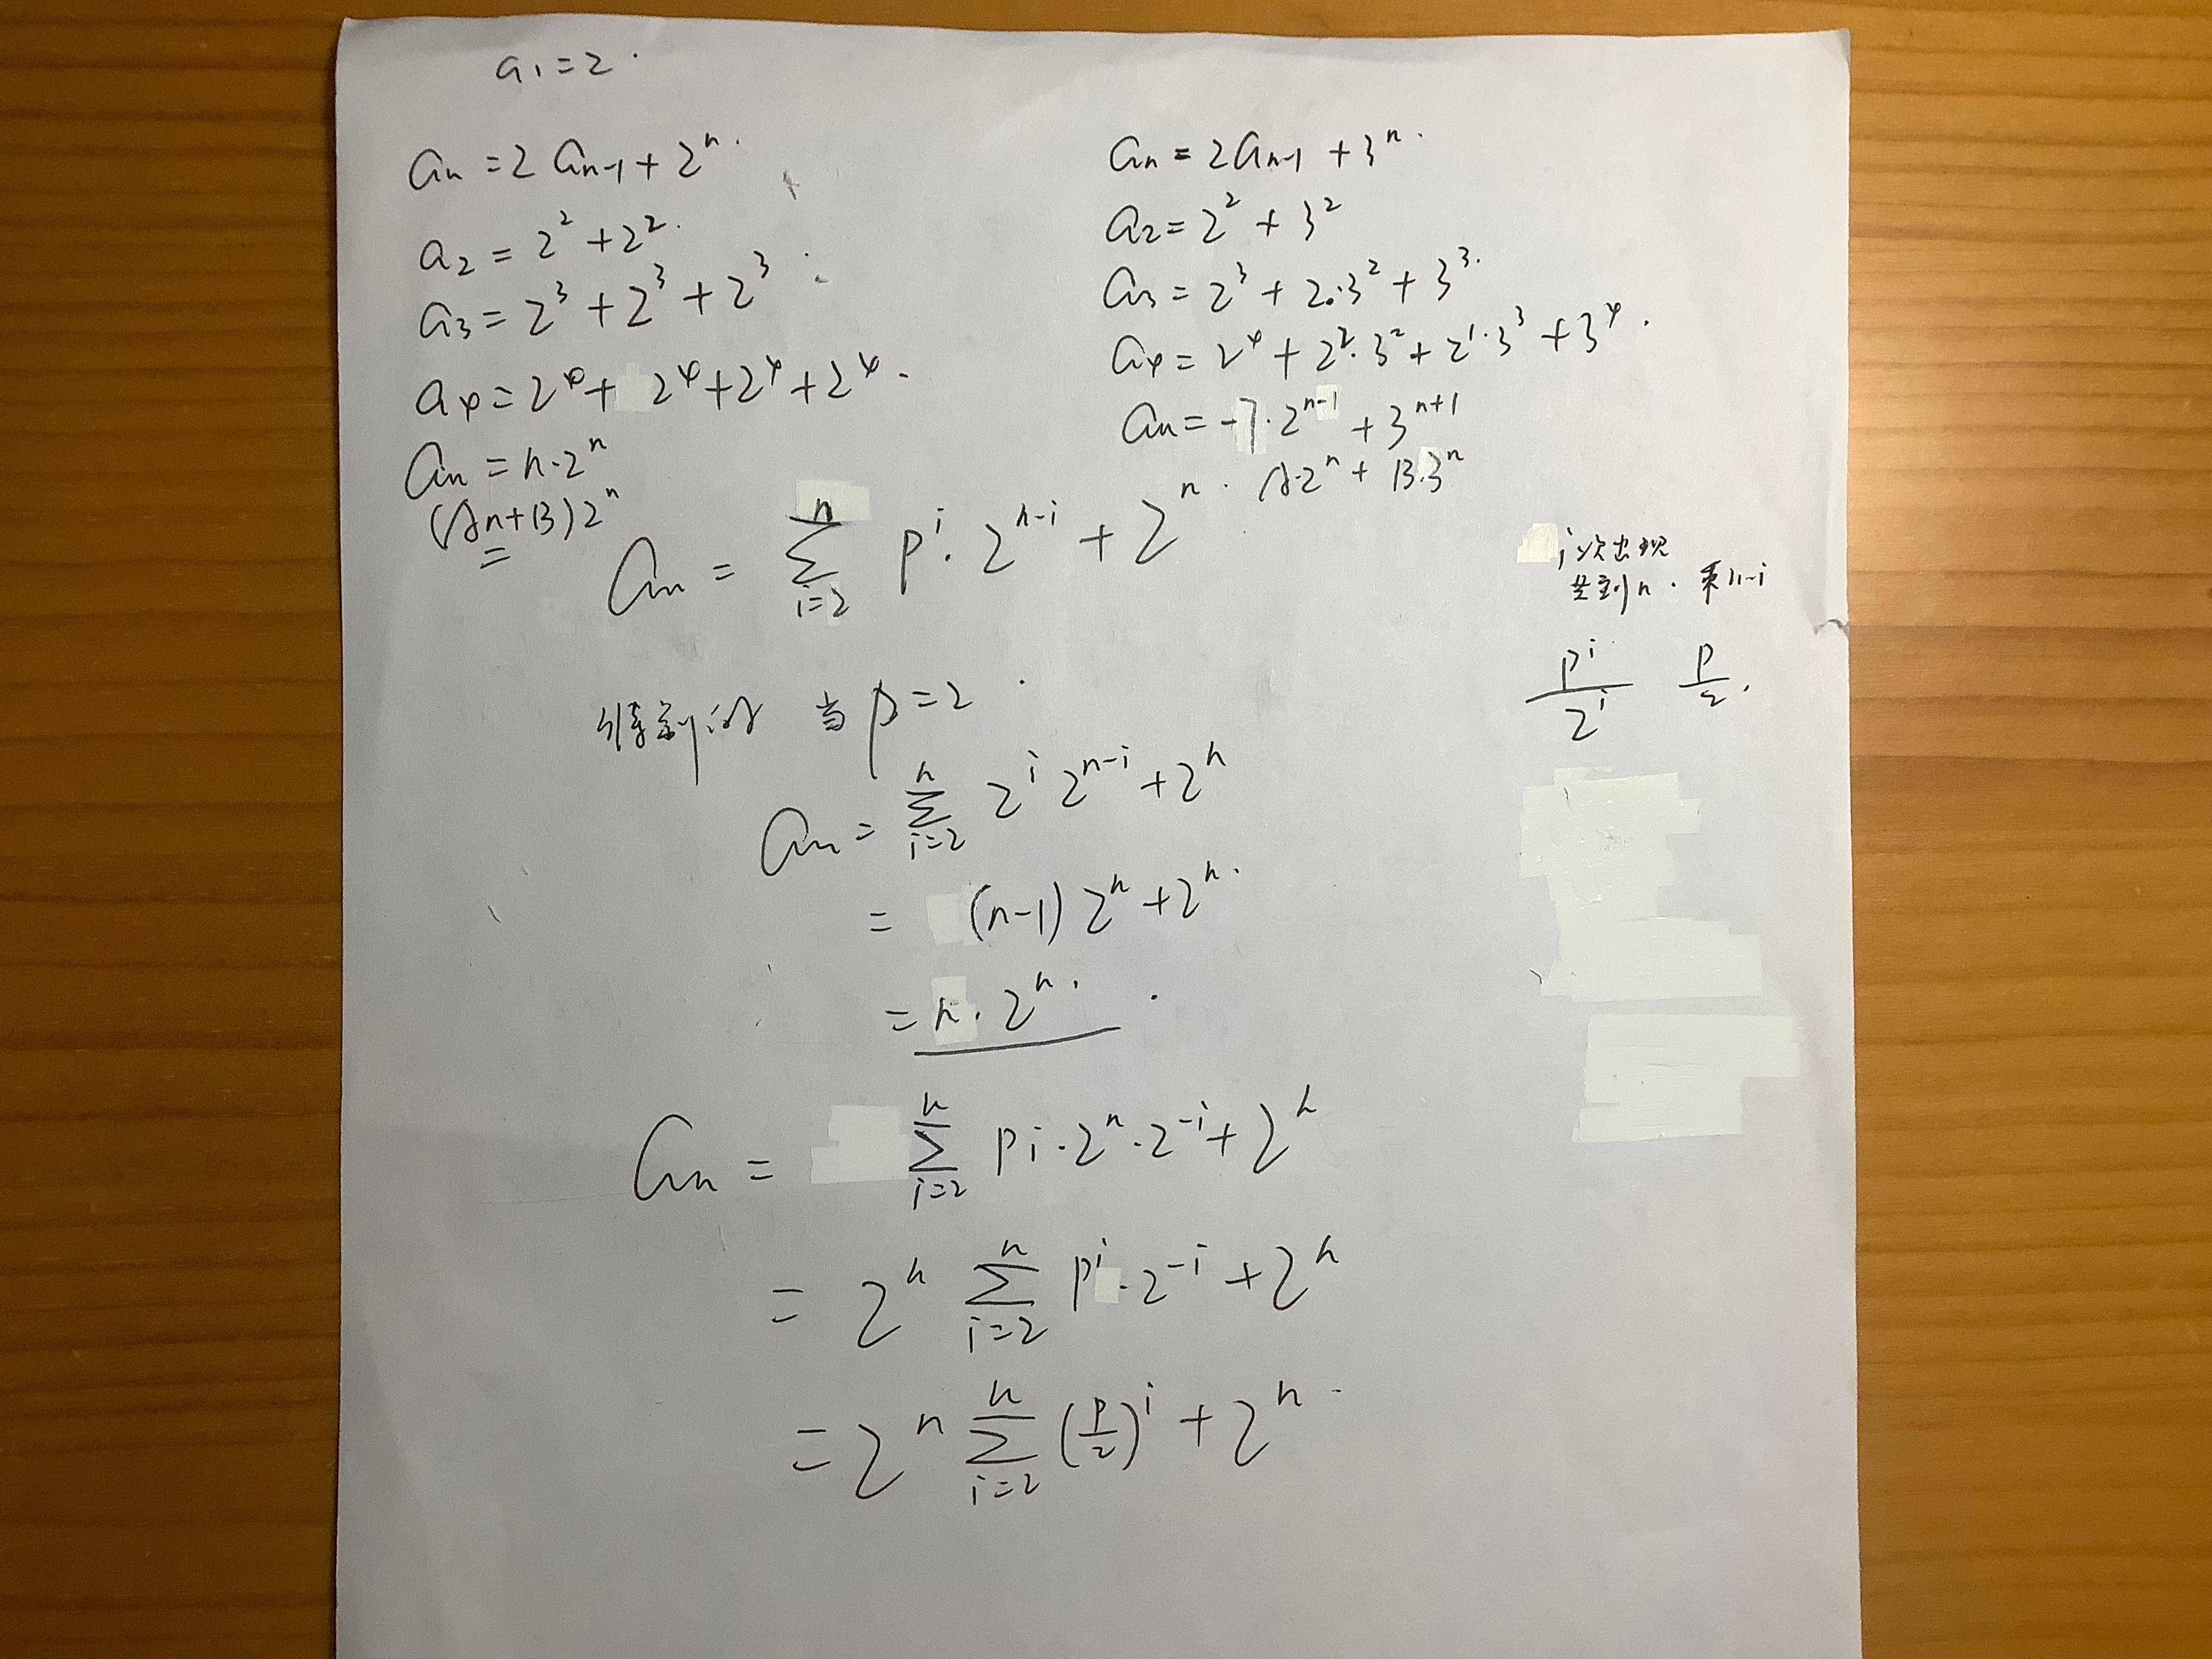 a₁=2.
aₙ = 2 aₙ₋₁ + 2ⁿ.
a₂ = 2² + 2².
a₃ = 2³ + 2³ + 2³
a₄ = 2⁴ + 2⁴ + 2⁴ + 2⁴.
aₙ = n·2ⁿ
(An+B)2ⁿ
aₙ = 2aₙ₋₁ + 3ⁿ.
a₂ = 2² + 3²
a₃ = 2³ + 2·3² + 3³.
a₄ = 2⁴ + 2²·3² + 2¹·3³ + 3⁴.
aₙ = -7·2ⁿ⁻¹ + 3ⁿ⁺¹
A·2ⁿ + B·3ⁿ
aₙ = ∑_{i=2}^{n} pⁱ·2ⁿ⁻ⁱ + 2ⁿ.
i次出现
到n. 乘n-i
pⁱ/2ⁱ p/2.
特别的 当p=2.
aₙ = ∑_{i=2}^{n} 2ⁱ 2ⁿ⁻ⁱ + 2ⁿ
= (n-1) 2ⁿ + 2ⁿ.
= n·2ⁿ.
aₙ = ∑_{i=2}^{n} pi·2ⁿ·2⁻ⁱ + 2ⁿ
= 2ⁿ ∑_{i=2}^{n} pⁱ·2⁻ⁱ + 2ⁿ
= 2ⁿ ∑_{i=2}^{n} (p/2)ⁱ + 2ⁿ.